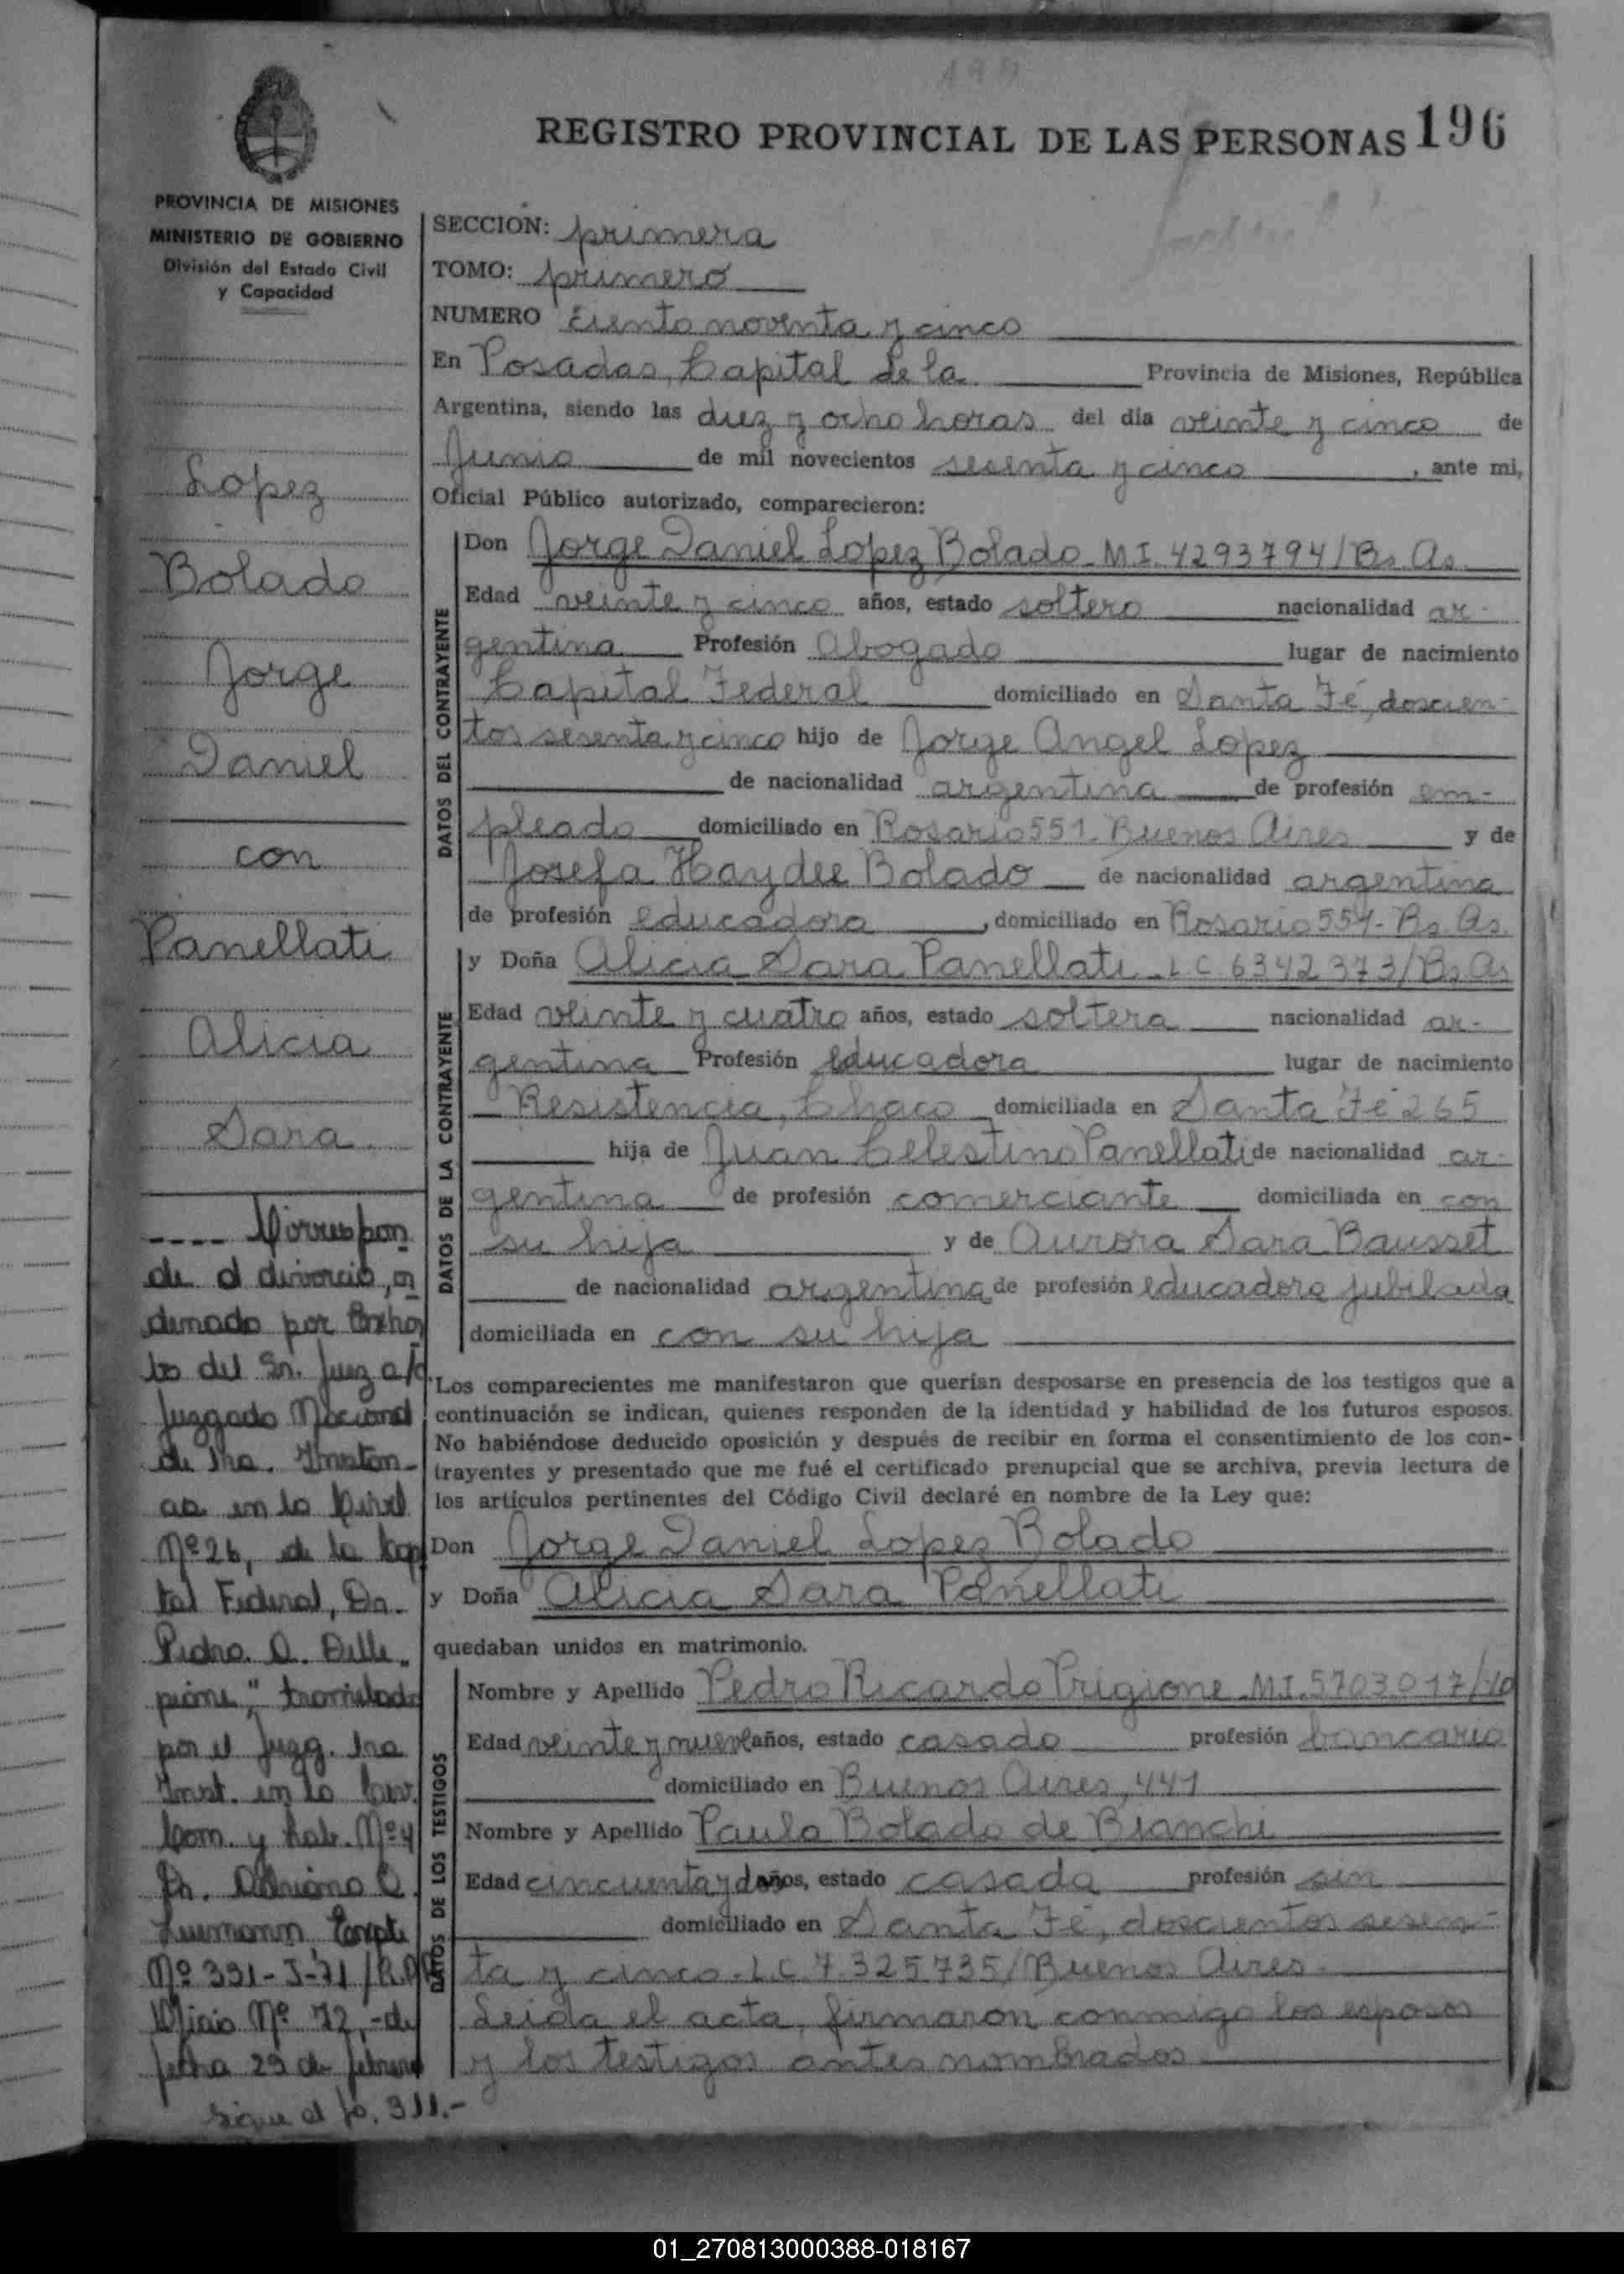 REGISTRO PROVINCIAL DE LAS PERSONAS 196
PROVINCIA DE MISIONES
MINISTERIO DE GOBIERNO
División del Estado Civil
y Capacidad
Lopez
Bolado
Jorge
Daniel
con
Panellati
Alicia
Sara
---- Correspon
de al divorcio, or
denado por Exhor
to del Sr. Juez a/c
Juzgado Nacional
de 1ra. Instan-
cia en lo Civil
Nº 26, de la Capi
tal Federal, Dr.
Pedro. A. Delle-
piane," tramitado
por el Juzg. 1ra
Inst. en lo Civ.
Com. y Lab. Nº 4
Dr.
Expte
Nº 391-J-71
Oficio Nº 72,- de
fecha 29 de febrero
Sigue al fo. 311.-
SECCION: primera
TOMO: primero
NUMERO Ciento noventa y cinco
En Posadas, Capital de la Provincia de Misiones, República
Argentina, siendo las diez y ocho horas del día veinte y cinco de
Junio de mil novecientos sesenta y cinco, ante mi,
Oficial Público autorizado, comparecieron:
DATOS DEL CONTRAYENTE
Don Jorge Daniel Lopez Bolado - M.I. 4293794/Bs. As.
Edad veinte y cinco años, estado soltero nacionalidad ar-
gentina Profesión Abogado lugar de nacimiento
Capital Federal domiciliado en Santa Fé, doscien-
tos sesenta y cinco hijo de Jorge Angel Lopez
de nacionalidad argentina de profesión em-
pleado domiciliado en Rosario 551 - Buenos Aires y de
Josefa Haydee Bolado de nacionalidad argentina
de profesión educadora, domiciliado en Rosario 551 - Bs. As.
DATOS DE LA CONTRAYENTE
y Doña Alicia Sara Panellati - L C 6342373/Bs As
Edad veinte y cuatro años, estado soltera nacionalidad ar-
gentina Profesión educadora lugar de nacimiento
Resistencia, Chaco domiciliada en Santa Fé 265
hija de Juan Celestino Panellati de nacionalidad ar-
gentina de profesión comerciante domiciliada en con
su hija y de Aurora Sara Bausset
de nacionalidad argentina de profesión educadora jubilada
domiciliada en con su hija
Los comparecientes me manifestaron que querían desposarse en presencia de los testigos que a
continuación se indican, quienes responden de la identidad y habilidad de los futuros esposos.
No habiéndose deducido oposición y después de recibir en forma el consentimiento de los con-
trayentes y presentado que me fué el certificado prenupcial que se archiva, previa lectura de
los artículos pertinentes del Código Civil declaré en nombre de la Ley que:
Don Jorge Daniel Lopez Bolado
y Doña Alicia Sara Panellati
quedaban unidos en matrimonio.
DATOS DE LOS TESTIGOS
Nombre y Apellido Pedro Ricardo Prigione M.I. 5703017
Edad veinte y nueve años, estado casado profesión bancario
domiciliado en Buenos Aires, 441
Nombre y Apellido Paula Bolado de Bianchi
Edad cincuenta y dos años, estado casada profesión sin
domiciliado en Santa Fé, doscientos sesen-
ta y cinco - L.C. 7.325735/Buenos Aires.-
Leida el acta, firmaron conmigo los esposos
y los testigos antes nombrados
01_270813000388-018167